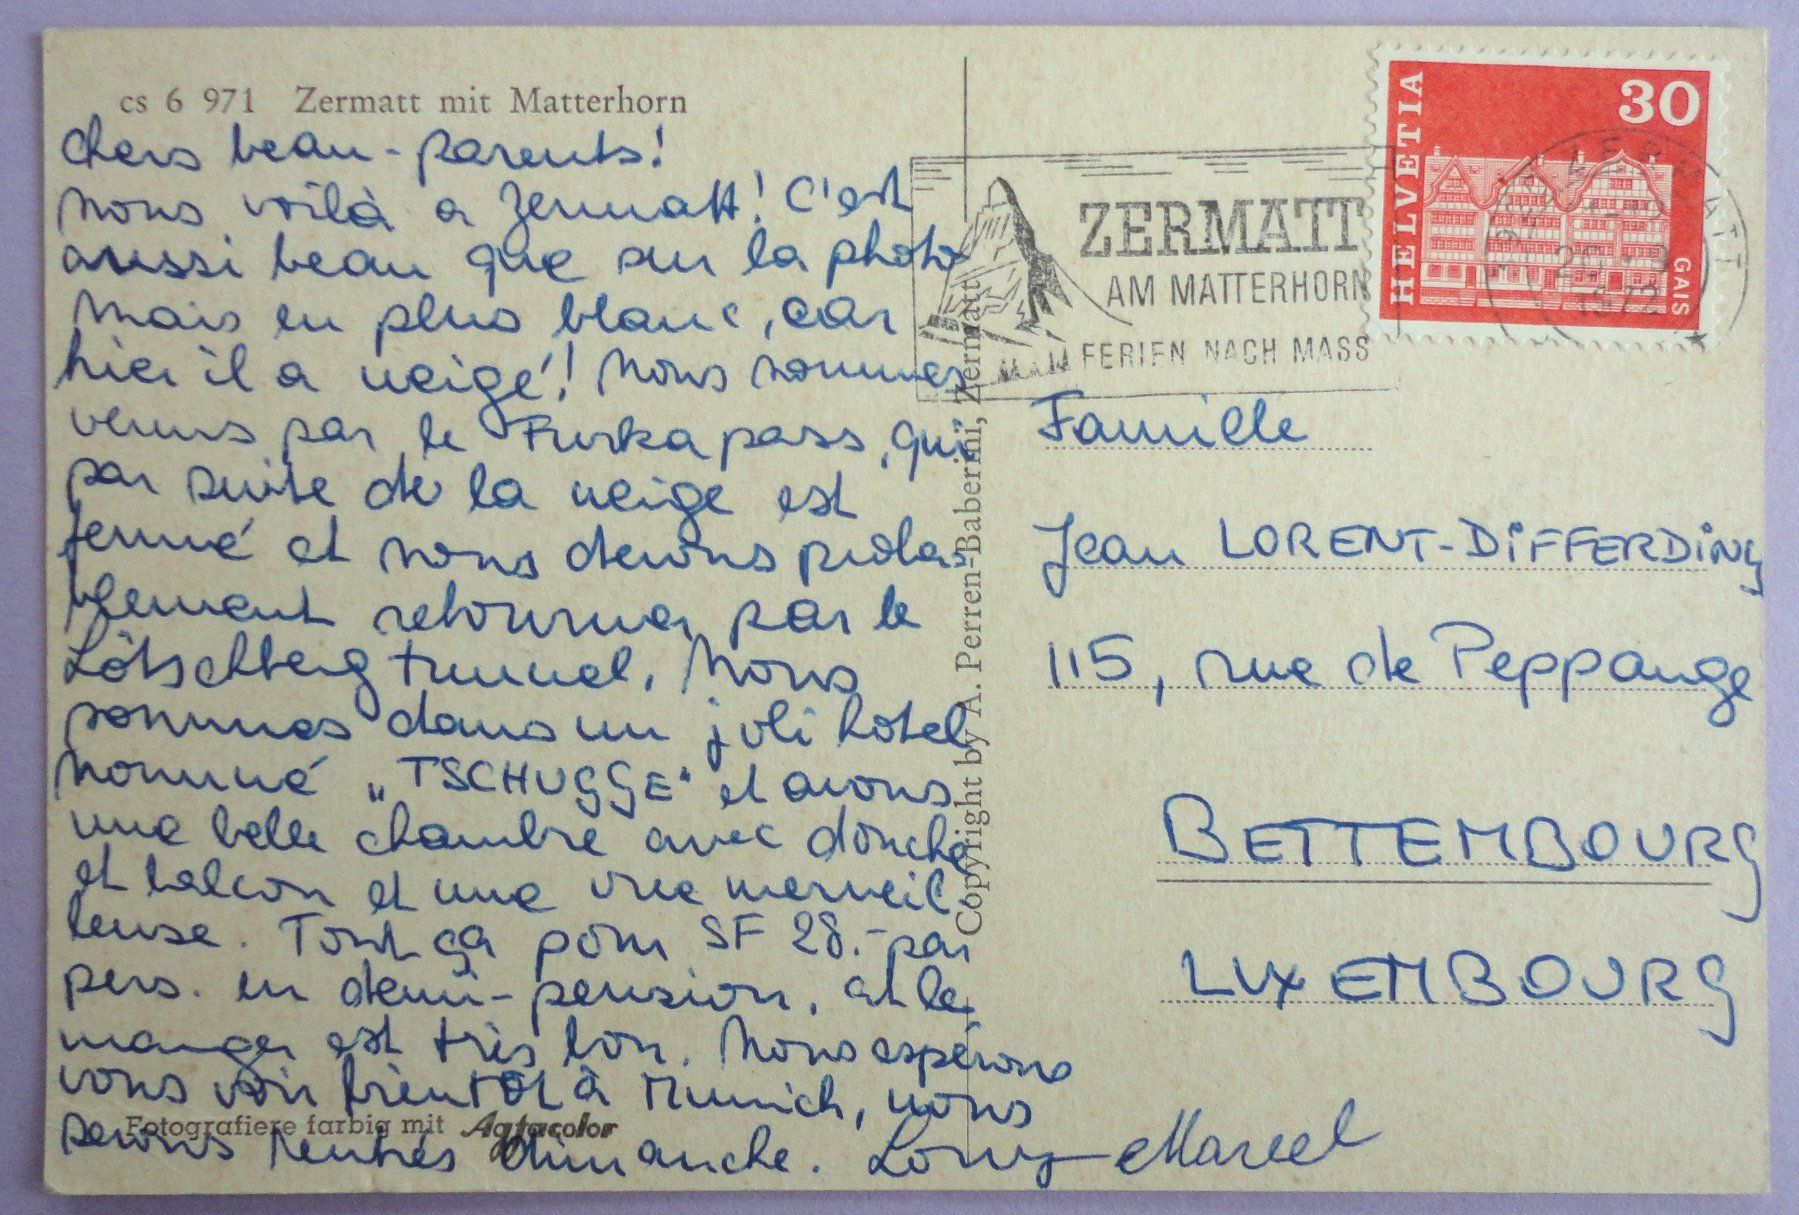 cs 6 971 Zermatt mit Matterhorn
Chers beau-parents!
Nous voilà a Zermatt! C'est
aussi beau que sur la photo
mais en plus blanc, car
hier il a neigé! Nous sommes
venus par le Furkapass, qui
par suite de la neige est
fermé et nous devons proba
blement retourner par le
Lötschbergtunnel. Nous
sommes dans un joli hotel
nommé „TSCHUGGE" et avons
une belle chambre avec douche
et balcon et une vue merveil
leuse. Tout ça pour SF 28.- par
pers. en demi-pension, et le
manger est très bon. Nous espérons
vous voir bientôt à Munich, nous
serons rentrés dimanche. Marcel
Fotografiere farbig mit Agfacolor
Copyright by A. Perren-Baberini, Zermatt
ZERMATT
AM MATTERHORN
FERIEN NACH MASS
HELVETIA
30
GAIS
ZERMATT
1972
Famille
Jean LORENT-DIFFERDING
115, rue de Peppange
BETTEMBOURG
LUXEMBOURG